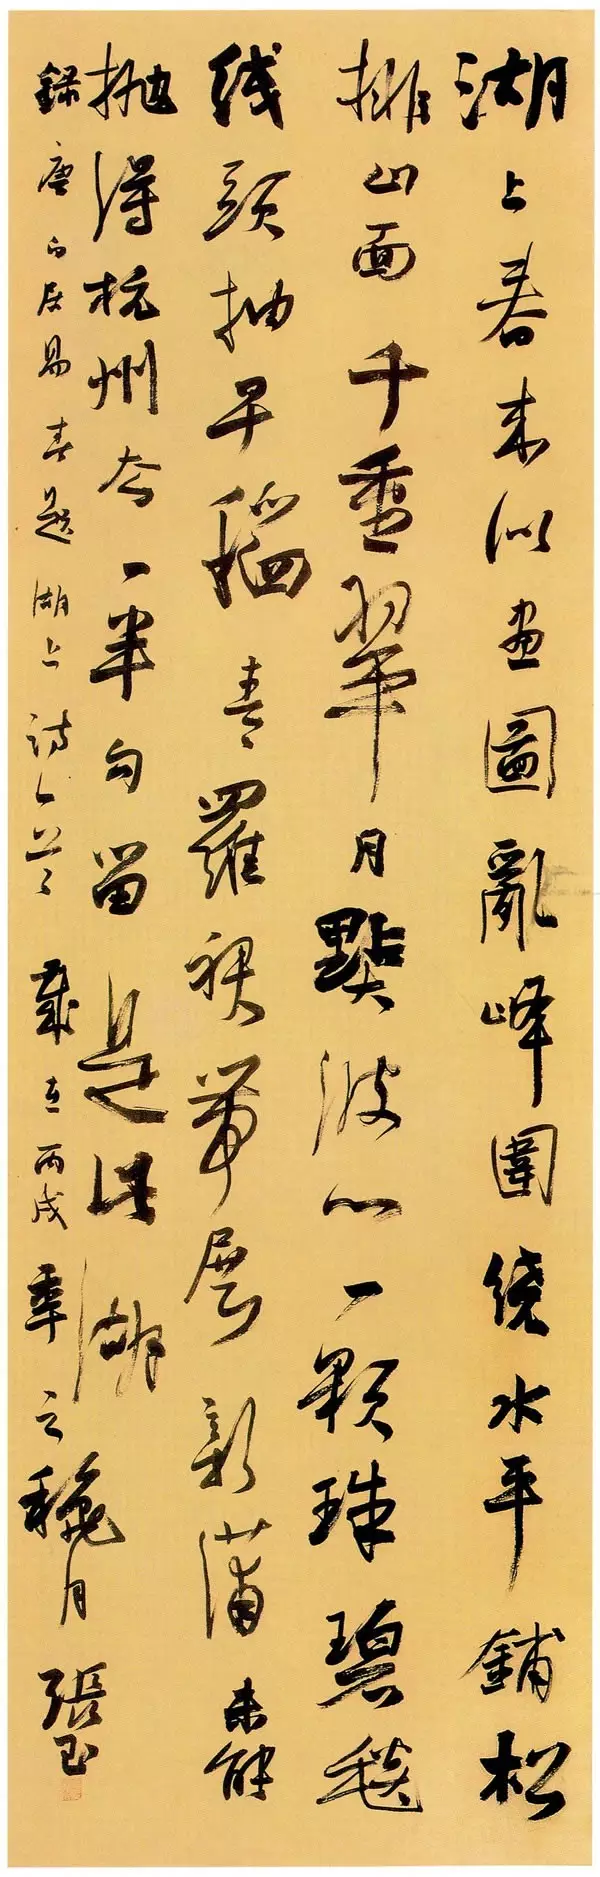 湖上春来似畫圖亂峰圍繞水平鋪松
排山面千重翠月點波心一顆珠碧毯
线頭抽早稻青羅裙帶展新蒲未能
抛得杭州去一半勾留是此湖
録唐白居易春題湖上詩一首歲在丙戌季之穐月張